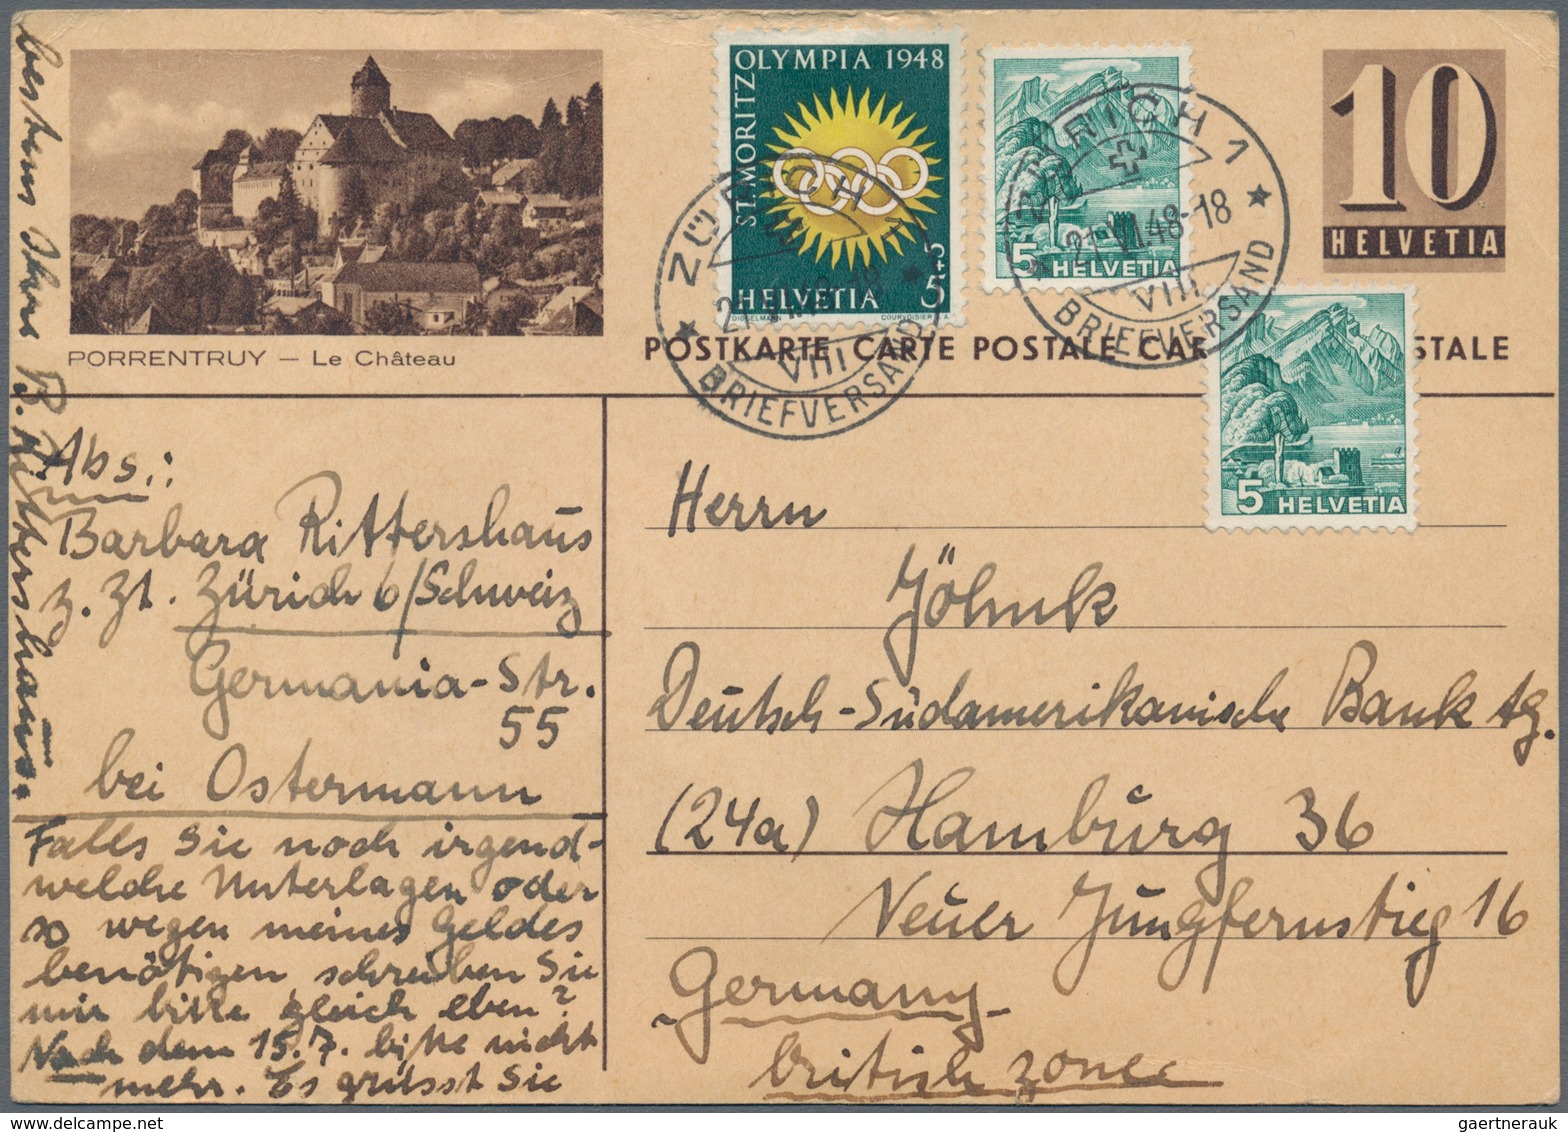 PORRENTRUY — Le Château
OLYMPIA 1948
ST. MORITZ
5+5
HELVETIA
DIGGELMANN COURVOISIER S.A.
5 HELVETIA
5 HELVETIA
10
HELVETIA
ZÜRICH 1
21.VI.48-18
VIII
BRIEFVERSAND
ZÜRICH 1
VIII
BRIEFVERSAND
POSTKARTE CARTE POSTALE CAR STALE
Abs.:
Barbara Rittershaus
z. Zt. Zürich 6/Schweiz
Germania-Str.
55
bei Ostermann
Falls Sie noch irgend-
welche Unterlagen oder
so wegen meines Geldes
benötigen schreiben Sie
mir bitte gleich eben?
Nach dem 15.7. bitte nicht
mehr. Es grüsst Sie
bestens Ihre B. Rittershaus.
Herrn
Jöhnk
Deutsch-Südamerikanische Bank Ag.
(24a) Hamburg 36
Neuer Jungfernstieg 16
Germany
british zone
gaertnerauk @ delcampe.net